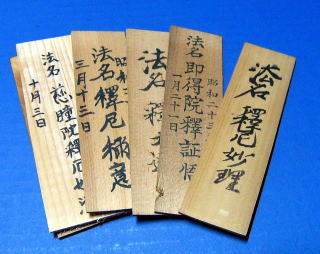 法名 釋尼妙理
昭和二十三
法名 即得院釋証悟
一月二十一日
法名 釋
昭和
法名 釋尼
三月十三日
法名 慈
院釋尼
十月三日